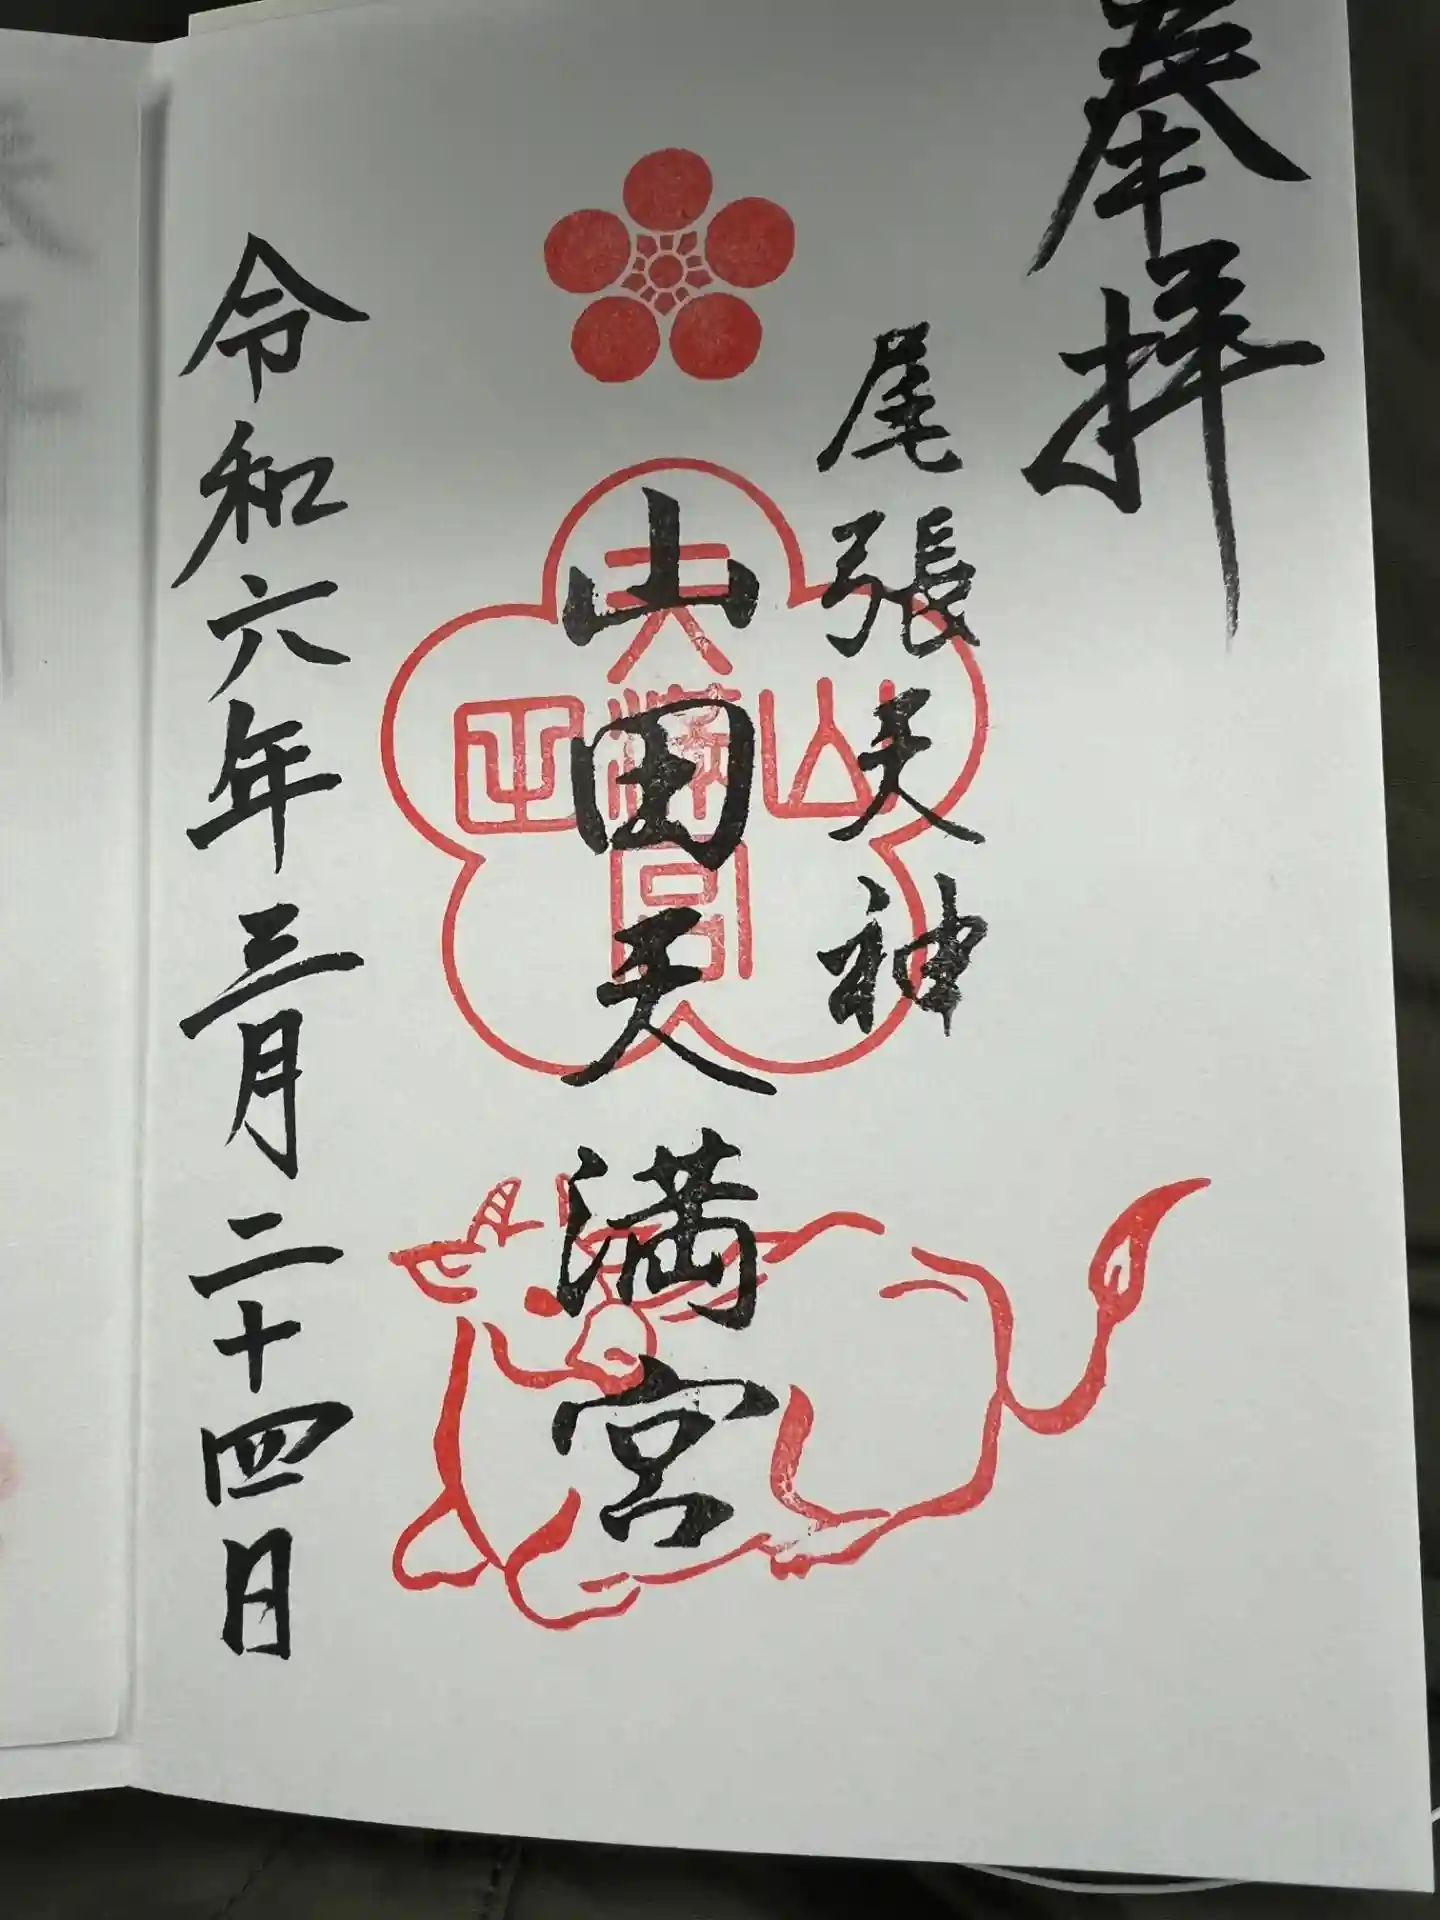 奉拝
尾張天神
山田天満宮
山田天満宮
令和六年三月二十四日